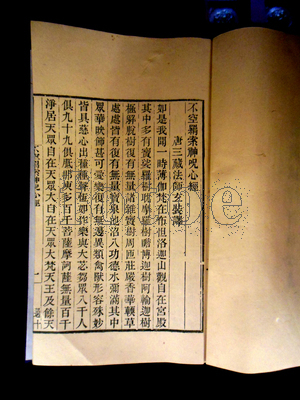 不空羂索神呪心經
唐三藏法師玄奘譯
如是我聞一時薄伽梵在布怛洛迦山觀自在宮殿
其中多有寶娑羅樹耽摩羅樹瞻博迦樹阿輸迦樹
極解脫樹復有無量寶樹周匝莊嚴香華輭草
處處皆有復有無量寶泉池沼八功德水彌滿其中
眾華映飾甚可愛樂復有無邊異類禽獸形容殊妙
皆具慈心出種種聲恆如作樂與大苾芻眾八千人
俱九十九俱胝那庾多百千菩薩摩訶薩無量百千
淨居天眾自在天眾大自在天眾大梵天王及餘天